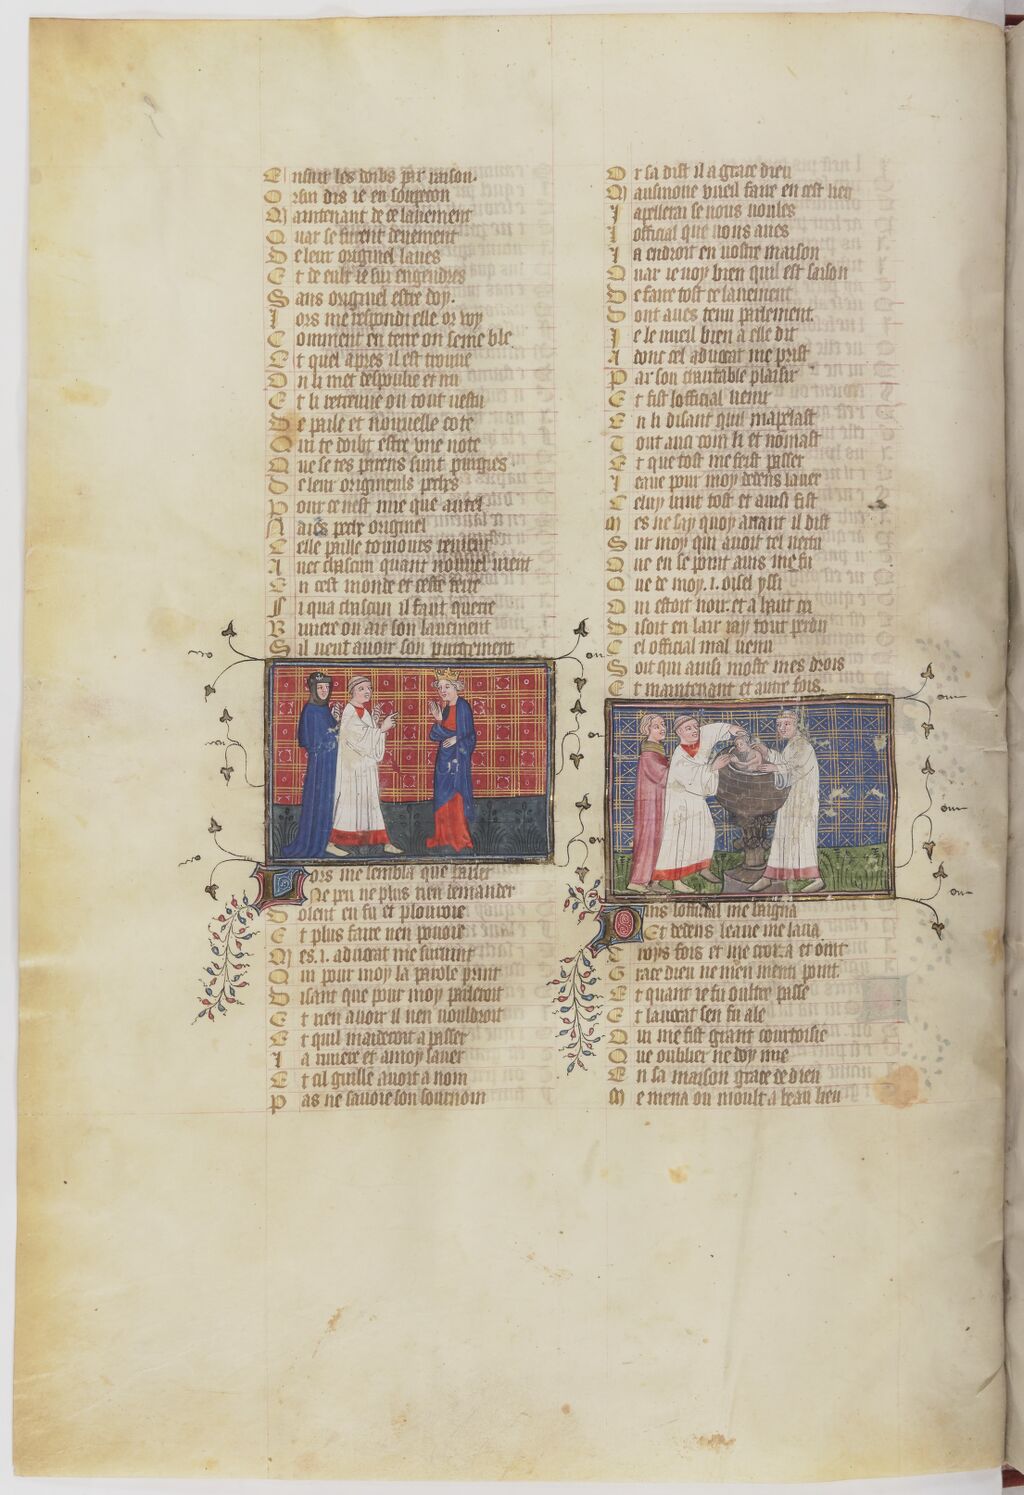 Ensuir les doibs par raison.
Orsin dis ie en soupecon
Maintenant de ce lauement
Quar se furent deuement
De leur originel laues
Et de eulx ie sui engendres
Sans originel estre doy.
Lors me respondi elle or voy
Comment en terre on seme ble
Et quel apres il est trouue
On li met despoulie et nu
Et li retreuue on tout vestu
De paile et nouuelle cote
Qui te doibt estre vne note
Que se tes parens sunt purgies
De leur origineuls pechies
Pour ce nest mie que autel
Naies pechie originel
Celle paille tousiours reuient
Auec chascun quant nouuel vient
En cest monde et ceste terre
Si qua chascun il faut querre
Riuiere ou ait son lauement
Sil veut auoir son purgement
Lors me sembla que parler
Ne peu ne plus rien demander
Dolent en fu et plouroie
Et plus faire nen pouoie
Mes .i. aduocat me suruint
Qui pour moy la parole print
Disant que pour moy parleroit
Et rien auoir il nen vouldroit
Et quil maideroit a passer
La riuiere et a moy lauer
Et cil guille auoit a nom
Pas ne sauoie son sournom
Or sa dist il a grace dieu
Aussi vueil faire en cest lieu
Iapellerai se vous voules
Lofficial que vous aues
Ia endroit en vostre maison
Quar ie voy bien quil est saison
De faire tost ce lauement
Dont aues tenu parlement.
Ie le vueil bien a elle dit
Adont cel aduocat me prist
Par son charitable plaisir
Et fist lofficial venir
En li disant quil mapelast
Tout ainsi com li et nommast
Et que tost me feist passer
Leaue pour moy dedens lauer
Celuy vint tost et ainsi fist
Mes ne say quoy auant il dist
Sur moy qui auoit tel vertu
Que en se point auis me fu
Que de moy .i. oisel yssi
Qui estoit noir et a haut cri
Disoit en lair iay tout perdu
Cel official mal venu
Soit qui ainsi moste mes drois
Et maintenant et autre fois.
Puis lofficial me baigna
Et dedens leaue me laua
Troys fois et me croisa et oint
Grace dieu ne men menti point.
Et quant ie fu oultre passe
Et lauocat sen fu ale
Qui me fist grant courtoisie
Que oublier ne doy mie
En sa maison grace de dieu
Me mena ou moult a beau lieu